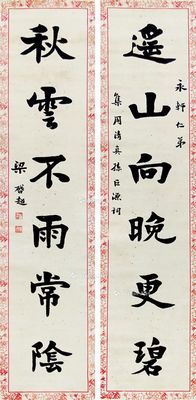 永軒仁弟
遙山向晚更碧
集周清真孫巨源詞
秋雲不雨常陰
梁啓超